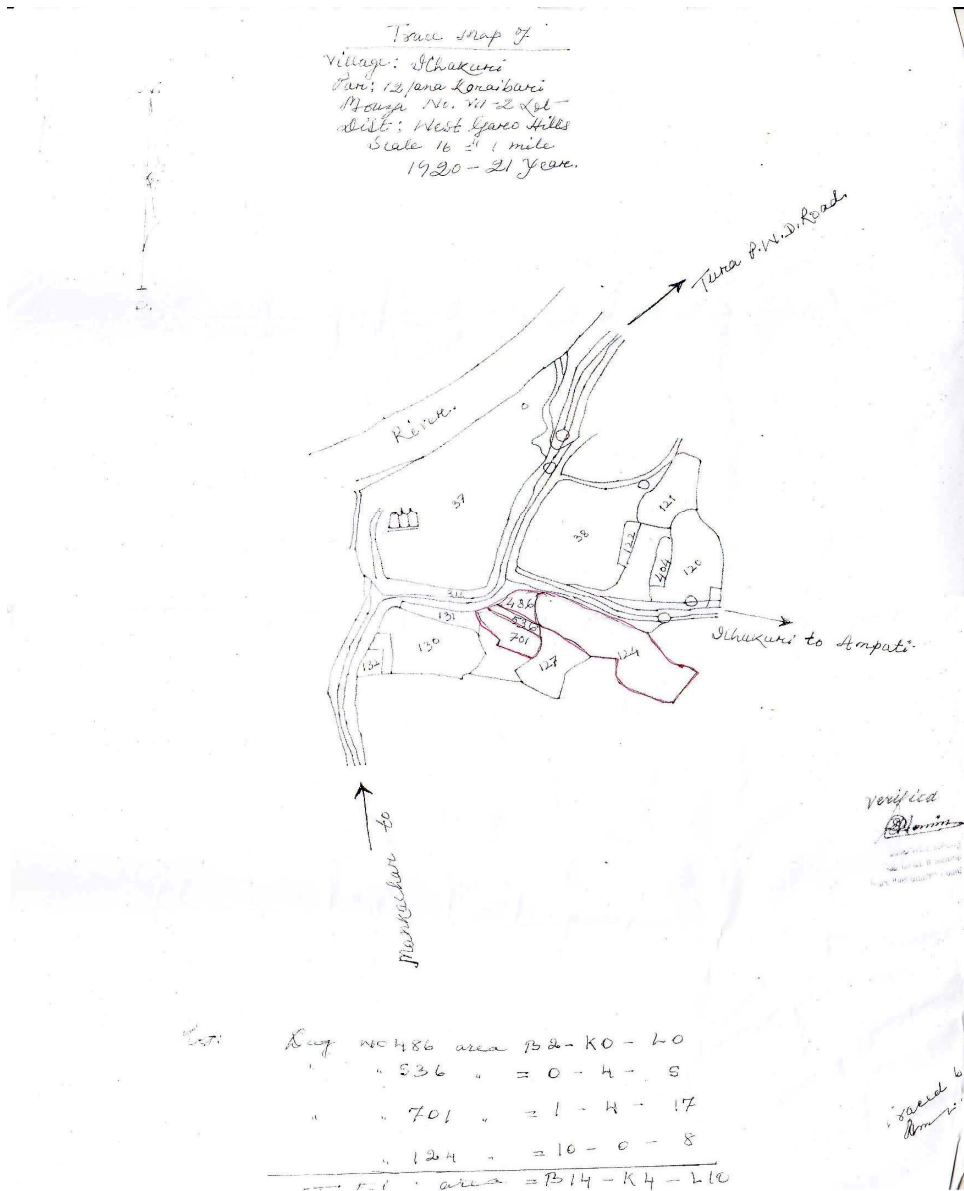 Trace Map of
Village: Ichakuri
Par: 12/ana Koraibari
Mouza No. VII-2 Lot-
Dist: West Garo Hills
Scale 16" = 1 mile
1920-21 Year.
N.
S.
Tura P.W.D. Road.
River.
37
38
121
122
404
120
131
130
132
486
536
701
127
124
Ichakuri to Ampati.
Mankachar to
Verified
Dag No 486 area B2-K0-L0
" " 536 " = 0-4-5
" " 701 " = 1-4-17
" 124 " = 10-0-8
area = B14-K4-L10
Traced by